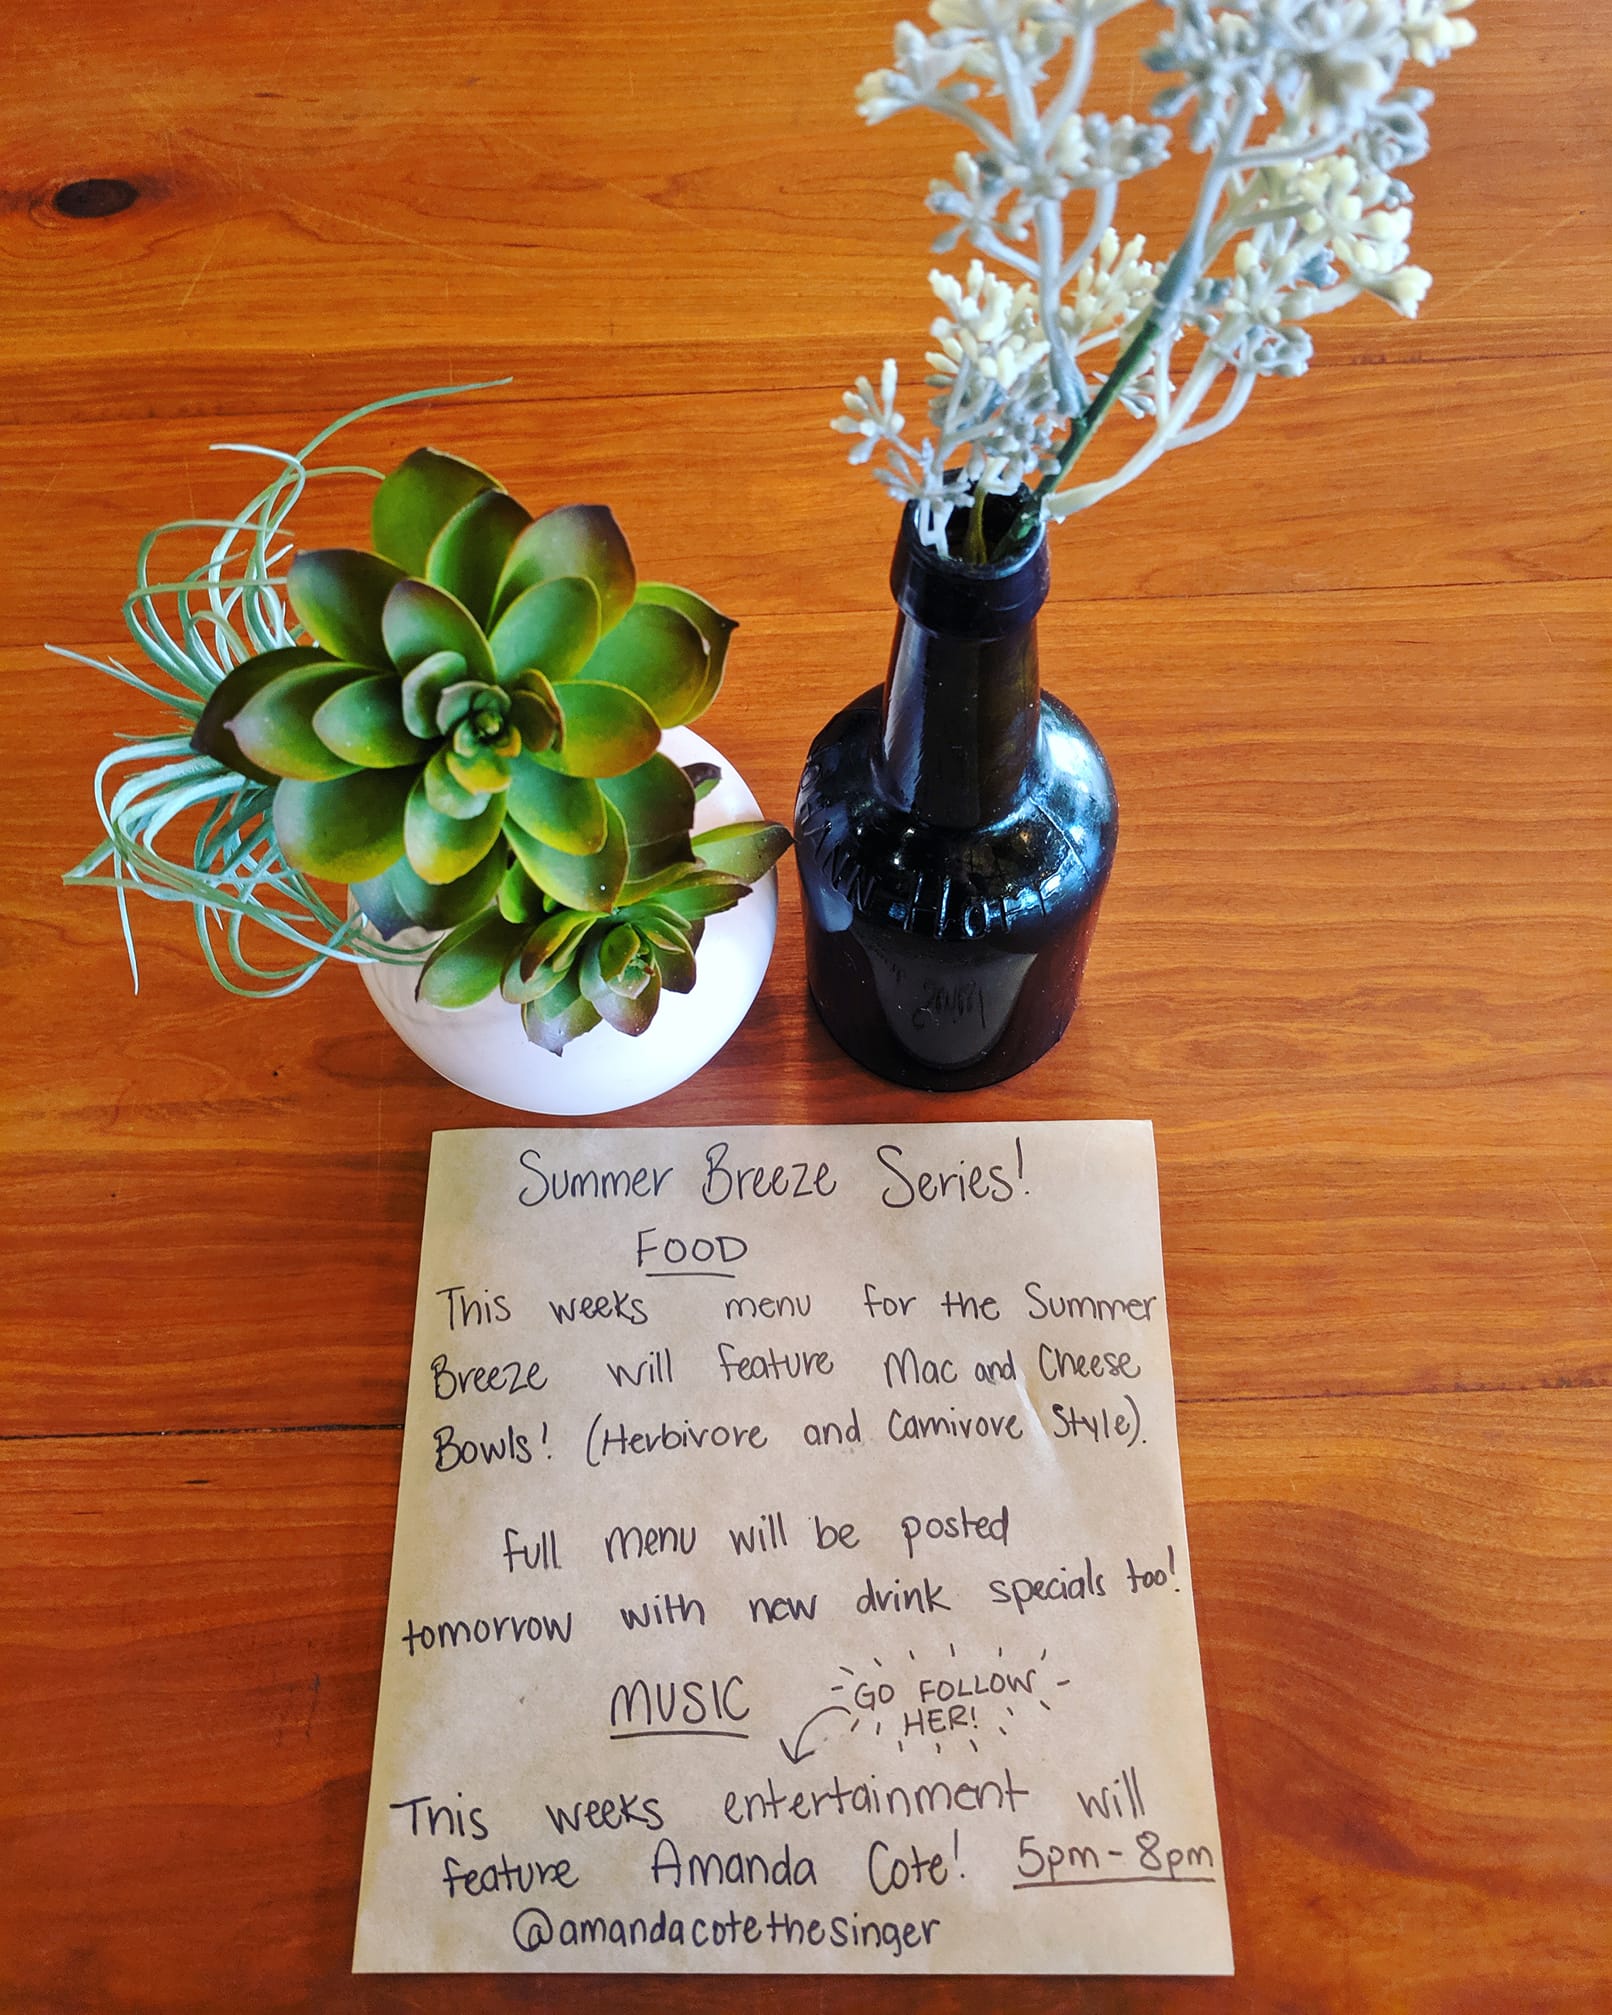 Summer Breeze Series!
FOOD
This weeks menu for the Summer
Breeze will feature Mac and Cheese
Bowls! (Herbivore and Carnivore Style).
full menu will be posted
tomorrow with new drink specials too!
MUSIC
GO FOLLOW
HER!
This weeks entertainment will
feature Amanda Cote! 5pm-8pm
@amandacotethesinger